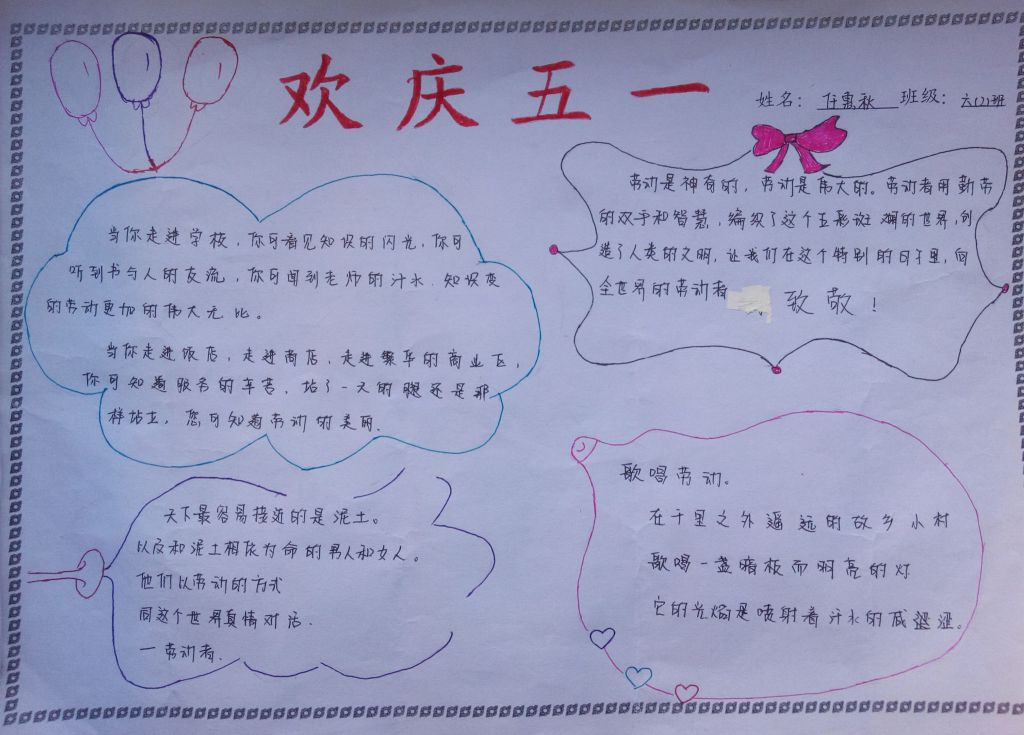 欢庆五一
姓名：任惠秋 班级：六(2)班
当你走进学校，你可看见知识的闪光，你可
听到书与人的交流，你可闻到老师的汗水．知识使
的劳动更加的伟大无比。
当你走进饭店，走进商店，走进繁华的商业区，
你可知道服务的辛苦，站了一天的腿还是那
样站立，您可知道劳动的美丽．
劳动是神奇的，劳动是伟大的。劳动者用勤劳
的双手和智慧，编织了这个五彩斑斓的世界，创
造了人类的文明，让我们在这个特别的日子里，向
全世界的劳动者 致敬！
天下最容易接近的是泥土。
以及和泥土相依为命的男人和女人。
他们以劳动的方式
同这个世界真情对话．
一劳动者．
歌唱劳动。
在千里之外遥远的故乡小村
歌唱一盏暗板而明亮的灯
它的光焰是喷射着汗水的咸涩。